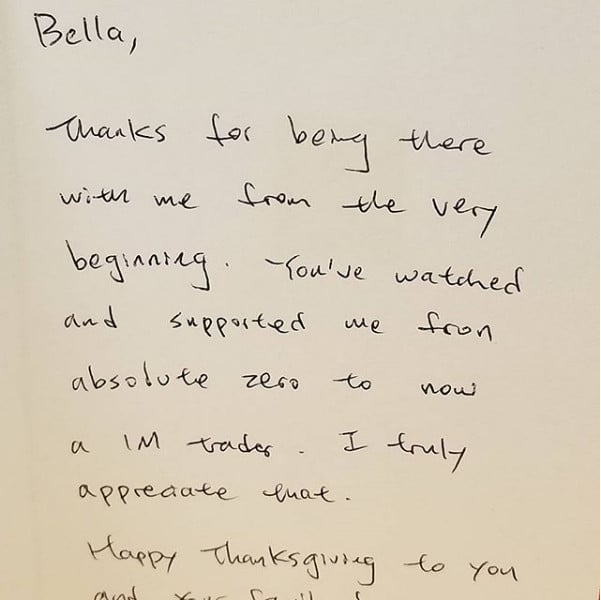 Bella,
Thanks for being there
with me from the very
beginning. You've watched
and supported me from
absolute zero to now
a 1M trader. I truly
appreciate that.
Happy Thanksgiving to you
and your